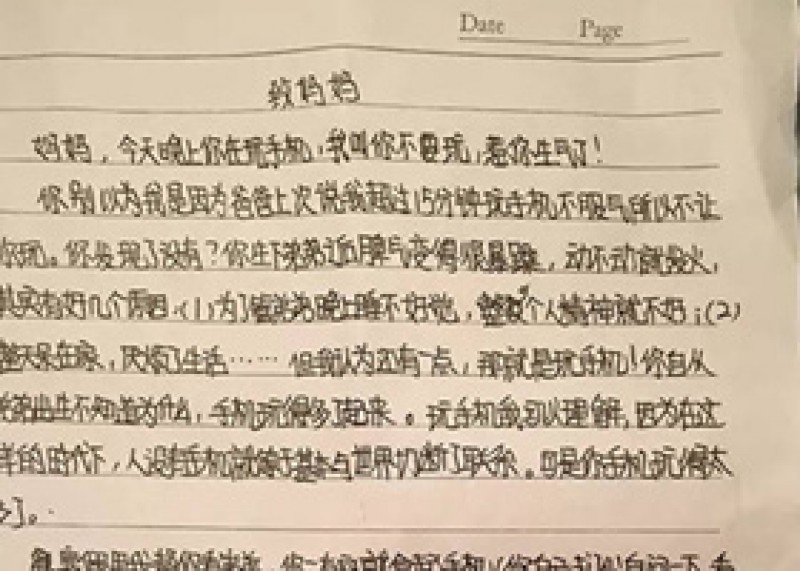 Date Page
致妈妈
妈妈，今天晚上你在玩手机，我叫你不要玩，惹你生气了！
你别以为我是因为爸爸上次说我超过15分钟玩手机不服气所以不让
你玩。你发现了没有？你生下弟弟后脾气变得很暴躁，动不动就发火，
其实有好几个原因：（1）为了管弟弟晚上睡不好觉，整个人精神就不好；（2）
整天呆在家，厌烦了生活……但我认为还有一点，那就是玩手机！你自从
弟弟出生不知道为什么，手机玩得多了起来。玩手机我可以理解，因为在这
样的时代下，人没有手机就等于基本与世界切断了联系。可是你手机玩得太
多了。